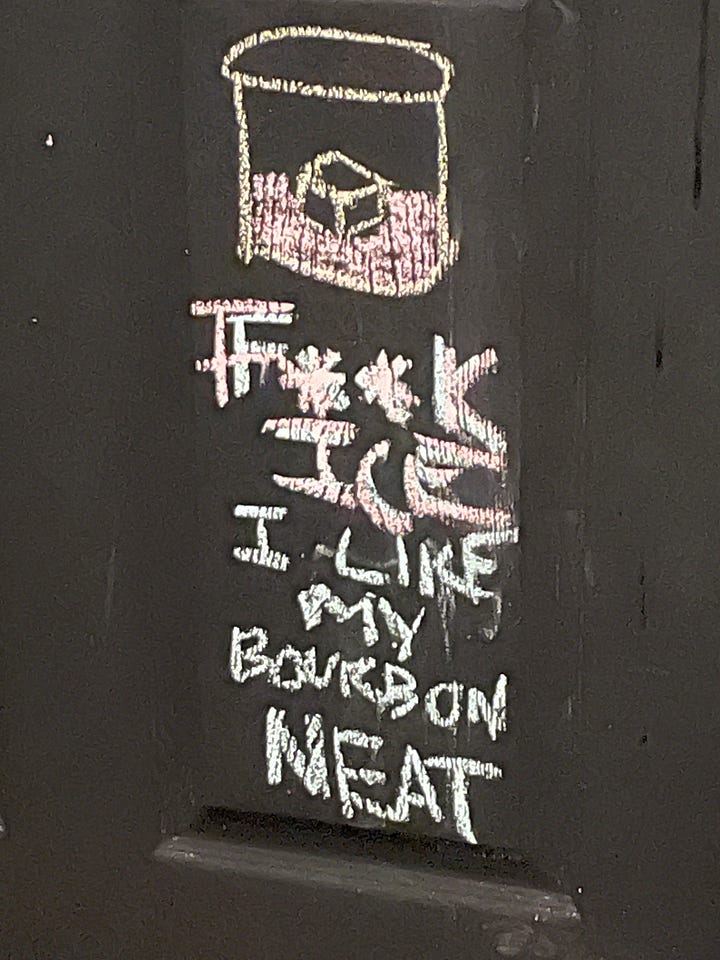 F**K
ICE
I LIKE
MY
BOURBON
NEAT